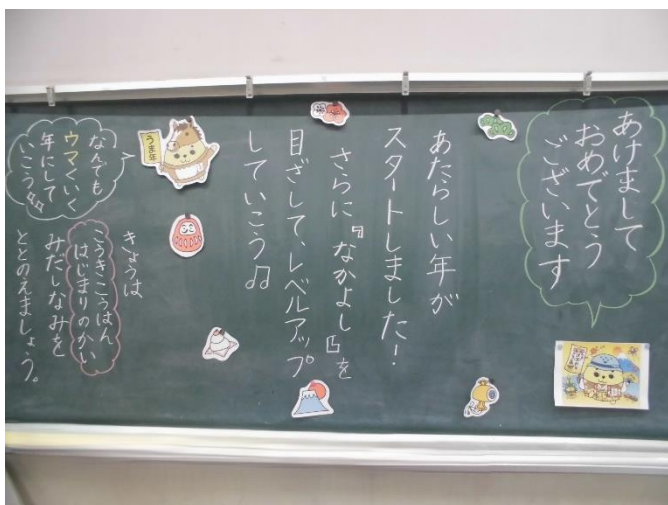 あけまして
おめでとう
ございます
あたらしい年が
スタートしました!
さらに『なかよし』を
目ざして、レベルアップ
していこう♫
うま年
なんでも
ウマくいく
年にして
いこう♫
きょうは
こうきこうはん
はじまりのかい
みだしなみを
ととのえましょう。